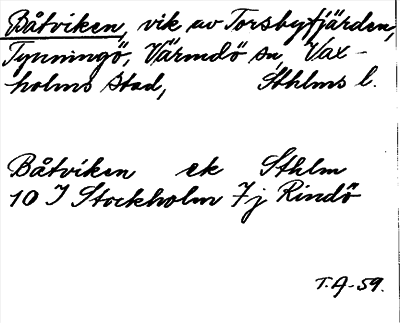 Båtviken, vik av Torsbyfjärden,
Tynningö, Värmdö sn, Vax-
holms stad, Sthlms l.
Båtviken ek Sthlm
10 I Stockholm 7j Rindö
T.A-59.